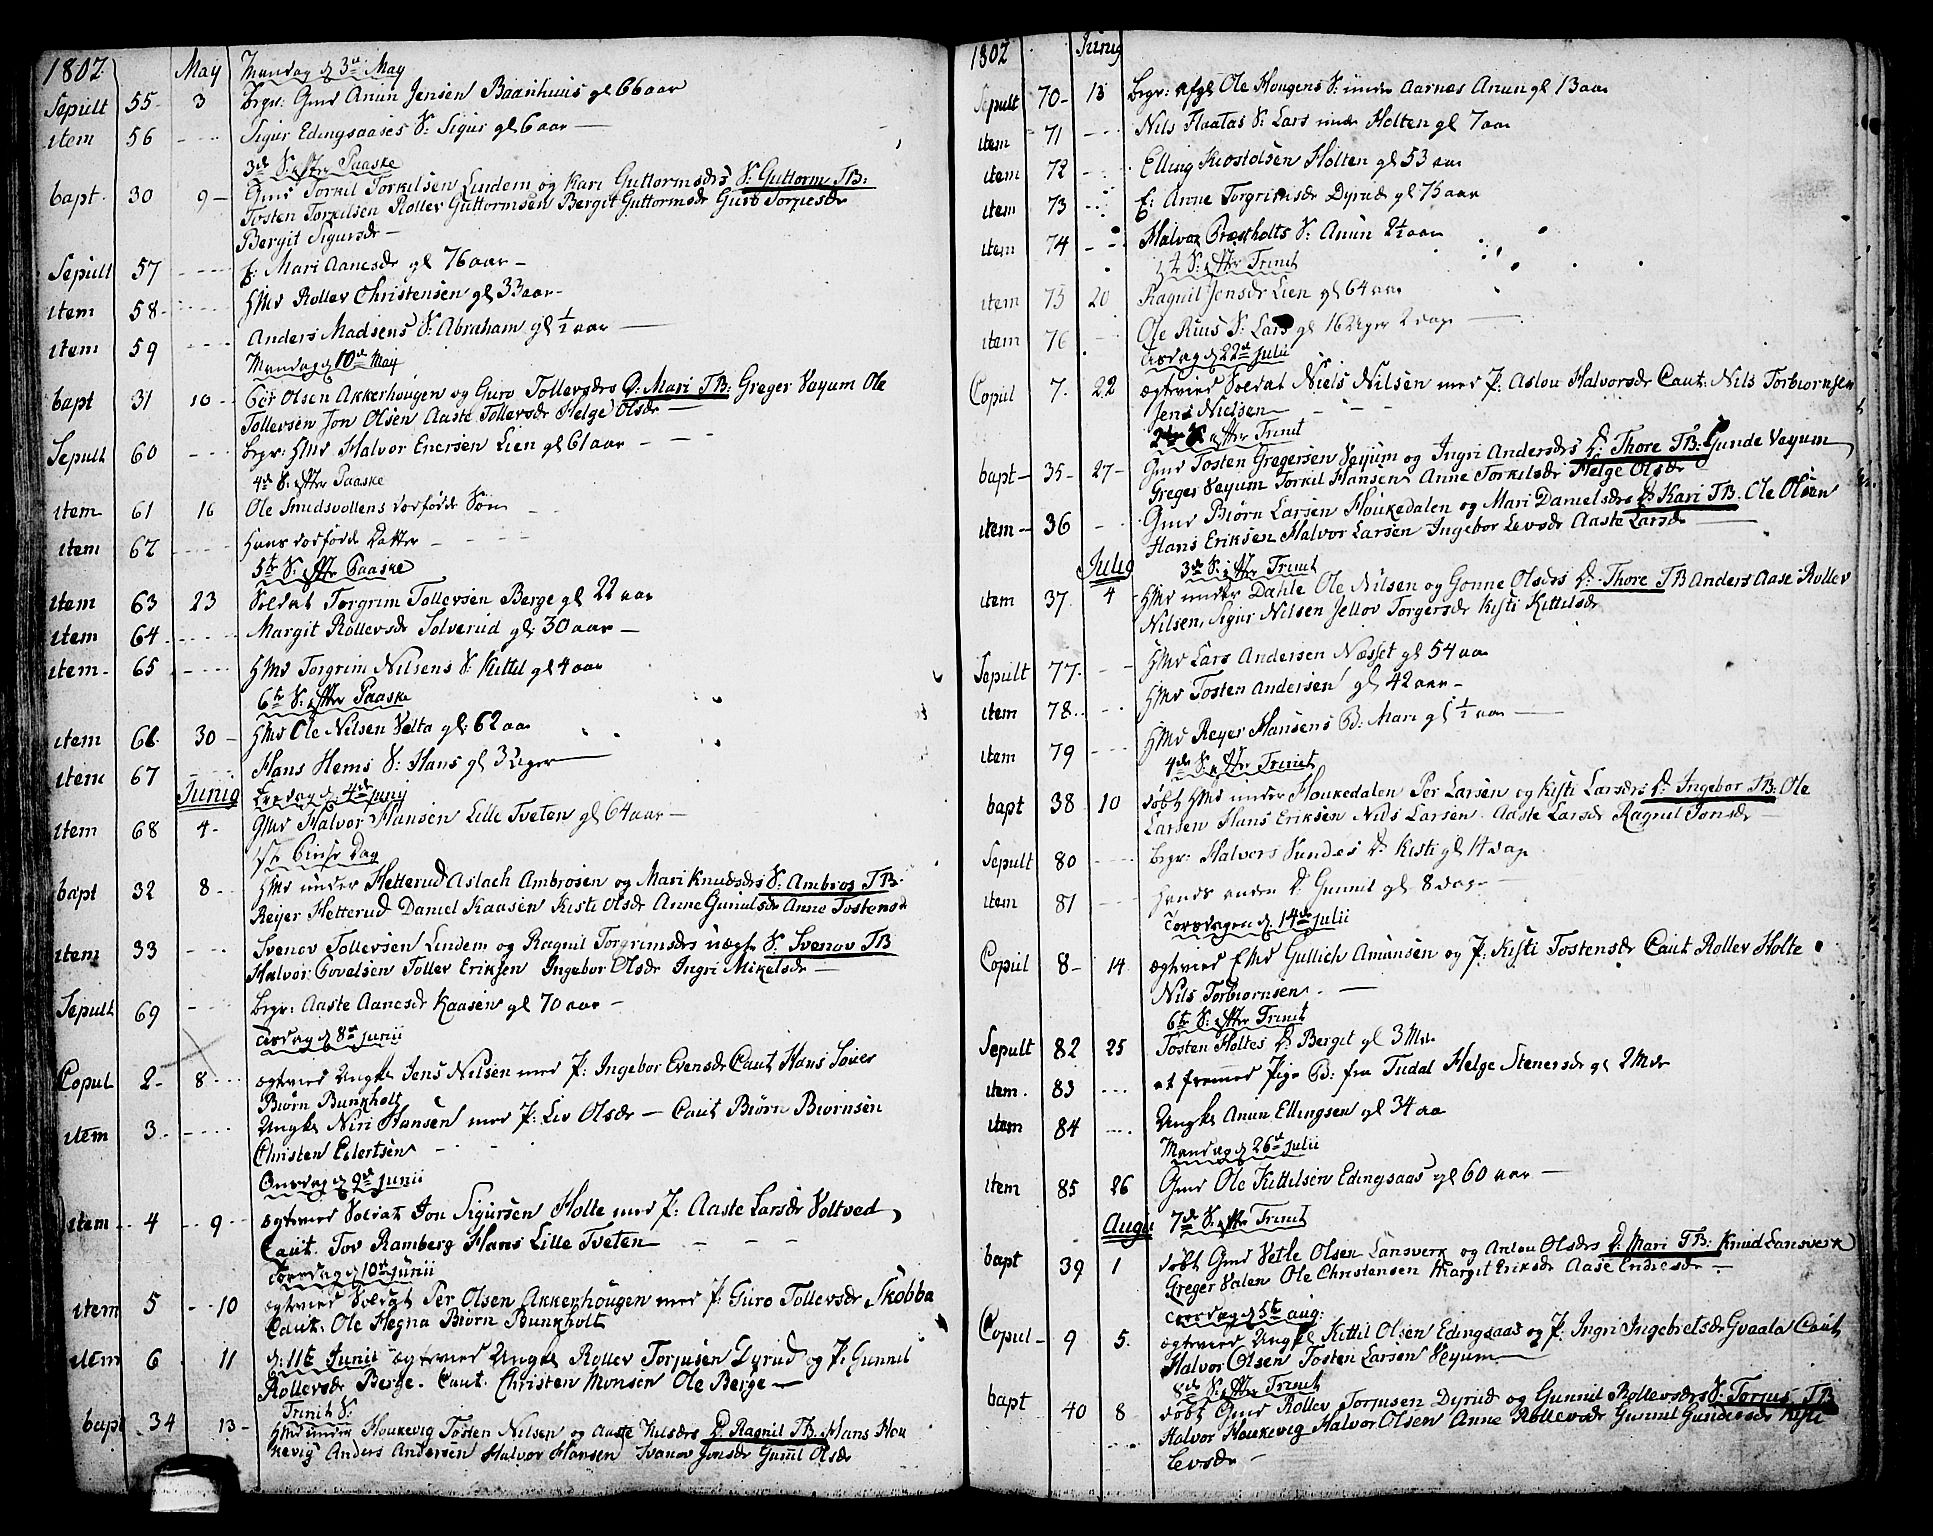 1802. May Mandag d 3die May
Sepult 55 - 3 Begr: Gmd Anun Jensen Baanhuus gl 66 aar
item 56 - Sigur Edingsaases S: Sigur gl 6 aar
3de S: efter Paaske
bapt. 30 9 - Gmd Torkil Torkilsen Lindem og Kari Guttormsdrs S: Guttorm TB:
Tosten Torkilsen Rollev Guttormsen Bergit Guttormsdr Guro
Bergit Sigursdr -
Sepult 57 - f: Mari Aanesdr gl 76 aar -
item 58 - Hmd Rollev Christensen gl 33 aar -
item 59 - Anders Madsens S: Abraham gl 1/2 aar
Mandag d 10de May
bapt 31 10 - Olsen Akkerhougen og Guro Tollevsdrs D: Mari TB: Greger Veyum Ole
Tollevsen Jon Olsen Aaste Tollevsdr Helge Olsdr -
Sepult 60 - Begr: Hmd Halvor Enersen Lien gl 61 aar
4de S: efter Paaske
item 61 16 Ole Smedsvollens dødfødde Søn
item 62 - Hans dødfødde Datter -
5te S: efter Paaske
item 63 23 Soldat Torgrim Tollevsen Berge gl 22 aar
item 64 - Margit Rollevsdr Solverud gl 30 aar -
item - 65 - Hmd Torgrim Nilsens S: Kittil gl 4 aar
6te S: efter Paaske
item 66 30 - Hmd Ole Nilsen Volta gl: 62 aar
item 67 - Hans Hems S: Hans gl 3 Uger
Junij Fredag d 4de Junij
item 68 4 - Gmd Halvor Hansen Lille Tveten gl 64 aar -
1ste Pintse Dag
bapt 32 8 - Hmd under Hetterud Aslach Ambrosen og Mari Knudsdrs S: Ambros TB.
Reyer Hetterud Daniel Kaasen Kisti Olsdr Anne Gunulsdr Anne Tostensdr
item 33 - Svenov Tollevsen Lindem og Ragnil Torgrimsdrs uægte S: Svenov TB
Halvor Tollev Eriksen Ingebor Olsdr Ingri Mikelsdr -
Sepult 69 - Begr: Aaste Aanesdr Kaasen gl 70 aar -
Tirsdag d 8de Junii
Copul 2 - 8 - ægtevied Ungkl Jens Nilsen med P: Ingebor Evensdr Caut Hans
Biørn Bunkholt
item 3. - Ungkl Niri Hansen med P: Liv Olsdr - Caut Biørn Biørnsen
Christen Edertsen -
Onsdag d 9de Junii
item - 4 - 9 - ægtevied Soldat Jon Sigursen Holte med P: Aaste Larsdr Voltved
Caut. Tov Ramberg Hans Lille Tveten -
Torsdag d 10de Junii
item 5 - 10 ægteviede Soldat Per Olsen Akkerhougen med P: Guro Tollevsdr Skobba
Caut. Ole Hegna Biørn Bunkholt
item 6 11 d: 11te Junii ægteviet Ungkl Rollev Torjusen Dyrud og P: Gunnil
Rollevsdr Berge. Caut. Christen Monsen Ole Berge -
Trinit S:
bapt 34 13 - Hmd under Houkevig Tosten Nilsen og Aaste D: Ragnil TB. Hans Hou
kevig Anders Andersen Halvor Hansen Svanov Jonsdr Gunil Olsdr
1802 Junij
Sepult 70 - 13 Begr: afgl Ole Hougens S: under Aarnas Anun gl 13 aar
item 71 - Nils Flaatas S: Lars under Holten gl 7 aar
item 72 - Elling Kiostolsen Holten gl 53 aar
item 73 - E: Anne Torgrimsdr Dyrud gl 75 aar
item 74 - Halvor Præstholts S: Anun 2 1/2 aar
1te S: efter Trinit
item 75 20 Ragnil Jensdr Lien gl 64 aar
item 76 - Ole Riis S: Lars gl 16 Uger 2 dage
Tirsdag d 22de Julii
Copul 7. 22 ægteviede Soldat Niels Nilsen med P: Aslou Halvorsdr Caut: Nils Torbiørnsen
Jens Nielsen
2den S: efter Trinit
bapt - 35 - 27 - Gmd Tosten Gregersen Veyum og Ingri Andersdrs D: Thore TB: Gunde Veyum
Greger Veyum Torkil Hansen Anne Torkilsdr Helge Olsdr
item - 36 - Gmd Biørn Larsen Houkedalen og Mari Danielsdrs D: Kari TB. Ole Olsen
Hans Eriksen Halvor Larsen Ingebor Levsdr Aaste Larsdr
Julij 3de S: efter Trinit
item 37 4 - Hmd under Dahle Ole Nilsen og Gonne Olsdrs D: Thore TB Anders Aase Rollev
Nilsen, Sigur Nilsen Jellov Torgersdr Kisti Kittilsdr
Sepult 77. - Hmd Lars Andersen Næsset gl 54 aar
item 78. - Hmd Tosten Andersen gl 42 aar -
item 79 - Hmd Reyer Hansens B: Mari gl 1/2 aar
4de S: efter Trinit
bapt 38 10 døbt Hmd under Houkedalen Per Larsen og Kisti Larsdrs D: Ingebor TB: Ole
Larsen Hans Eriksen Nils Larsen Aaste Larsdr Ragnil Jonsdr
Sepult 80 - Begr: Halvors Sundes D: Kisti gl 14 dage
item 81 - Hands anden D: Gunnil gl 8 Dage -
Torsdagen d. 14de Julii
Copul 8 - 14 ægteviede E Md Gullich Amunsen og P: Kisti Tostensdr Caut Rollev Holte
Nils Torbiørnsen. -
6te S: efter Trinit
Sepult 82 25 Tosten Holtes D: Bergit gl 3 Mdr
item. 83 - et fremmed Pige B: fra Tudal Helge Stenersdr gl 2 Mdr
item 84 - Ungkl Anun Ellingsen gl 34 aar
Mandag d 26de Julii
item 85 26 Gmd Ole Kittilsen Edingsaas gl 60 aar -
Augu 7de S: efter Trinit
bapt 39 1 døbt Gmd Vetle Olsen Lansverk og Anlou Olsdrs D: Mari TB: Knud Lansverk
Greger Valen Ole Christensen Margit Eriksdr Aase Endresdr -
Torsdag d 5te aug:
Copul - 9 5. ægteviede Ungkl Kittil Olsen Edingsaas og P: Ingri Ingebretsdr Gvaala Caut
Halvor Olsen Tosten Larsen Veyum
8de S: efter Trinit
bapt 40 8 - døbt Gmd Rollev Torjusen Dyrud og Gunnil Rollevsdrs S: Torjus TB
Halvor Houkevig Halvor Olsen Anne Rollevsdr Gunnil Kisti
Levsdr -